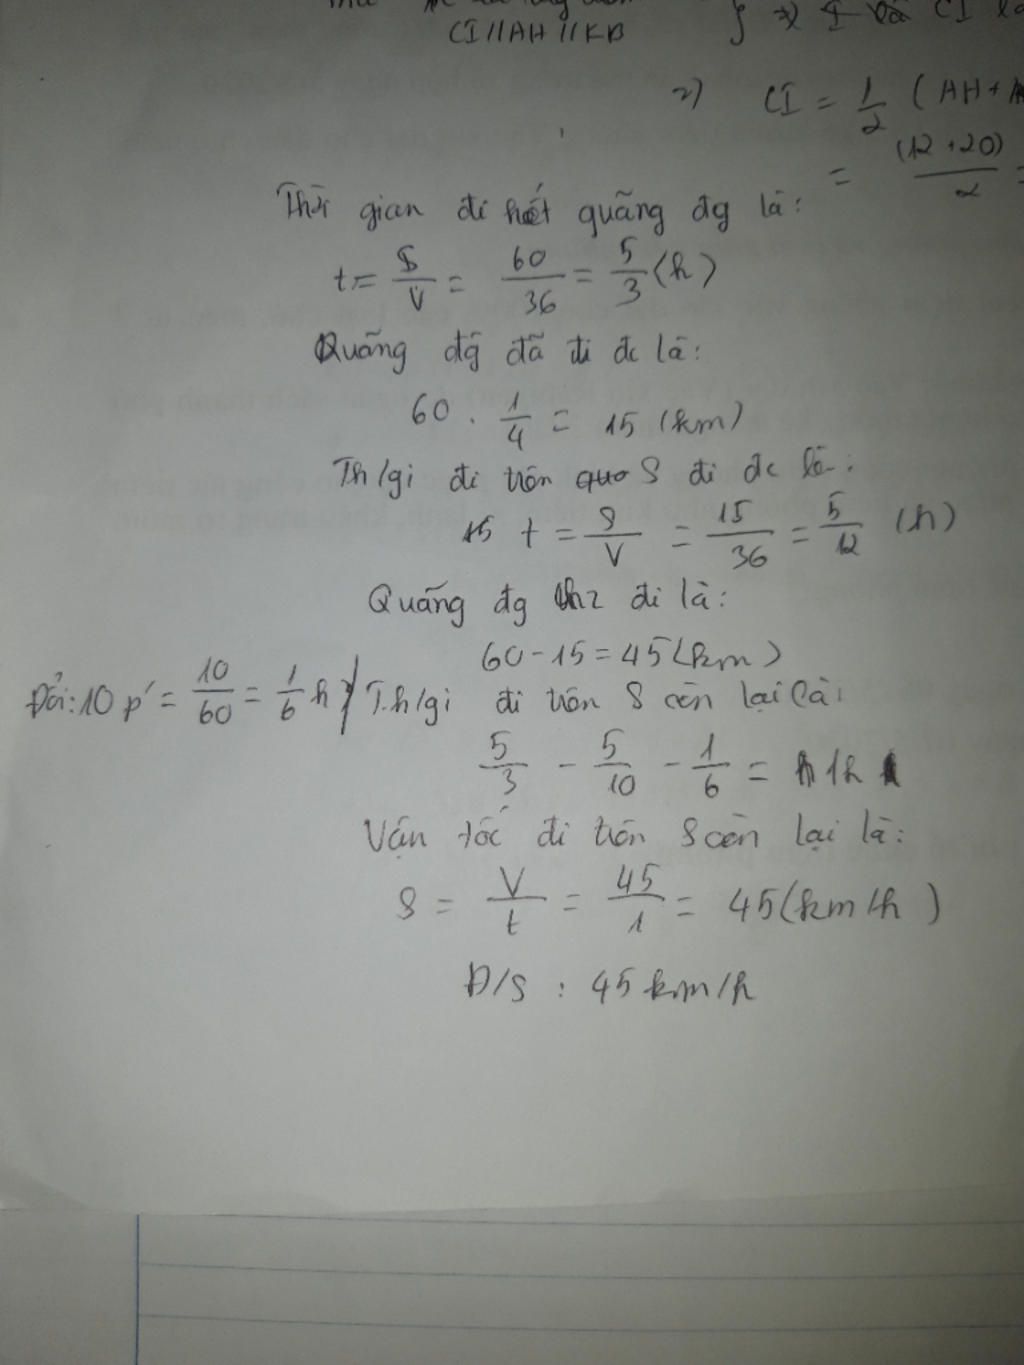 CI // AH // KB
2) CI = 1/2 (AH +
= (12+20)/2 =
Thời gian đi hết quãng đg là:
t = S/V = 60/36 = 5/3 (h)
Quãng đg đã đi đc là:
60 . 1/4 = 15 (km)
Th/gi đi trên S đi đc là:
t = S/V = 15/36 = 5/12 (h)
Quãng đg thứ 2 đi là:
60 - 15 = 45 (km)
Đổi: 10 p' = 10/60 = 1/6 h
Th/gi đi trên S còn lại là:
5/3 - 5/10 - 1/6 = 1h
Vận tốc đi trên S còn lại là:
S = V/t = 45/1 = 45 (km/h)
Đ/S : 45 km/h